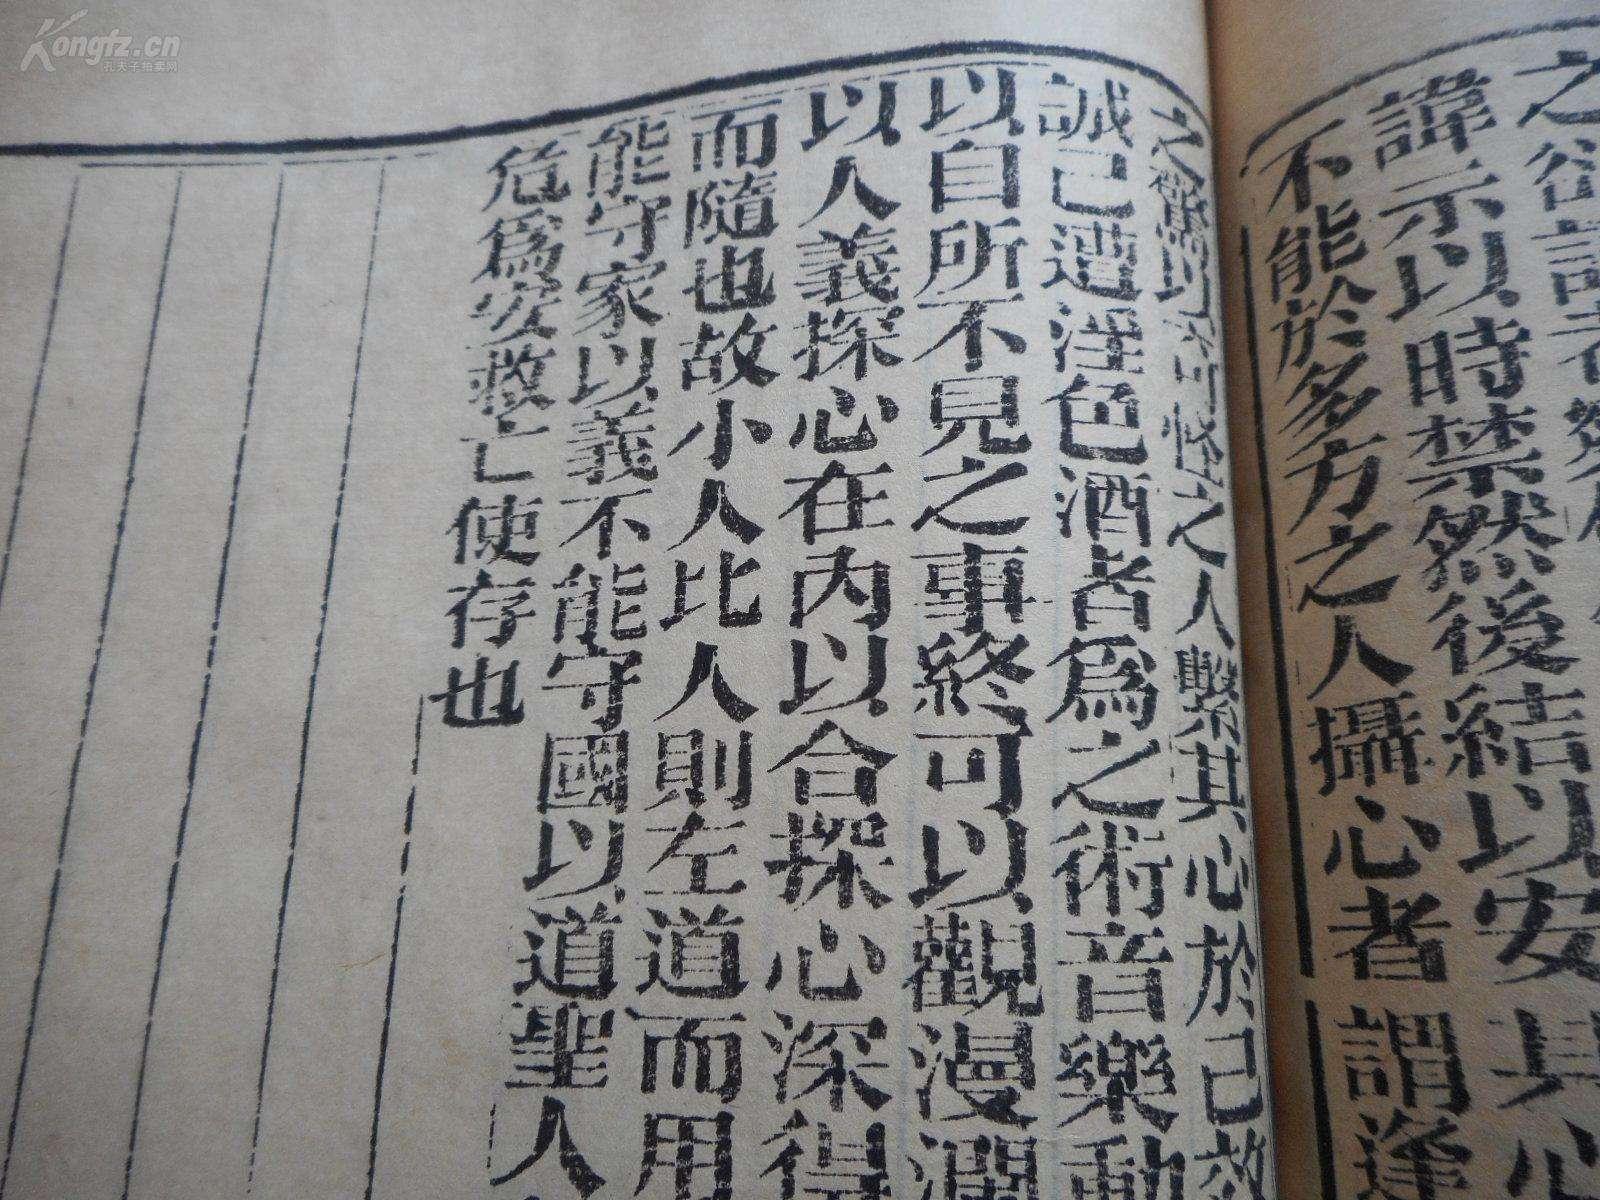 Kongfz.cn
孔夫子拍卖网
之卻語者
諱示以時禁然後結以安其心
不能於多方之人攝心者謂逢
之驚以可怪之人繫其心於己效
誠己遭淫色酒者爲之術音樂動
以自所不見之事終可以觀漫瀾
以人義探心在內以合探心深得
而隨也故小人比人則左道而用
能守家以義不能守國以道聖人
危爲安救亡使存也